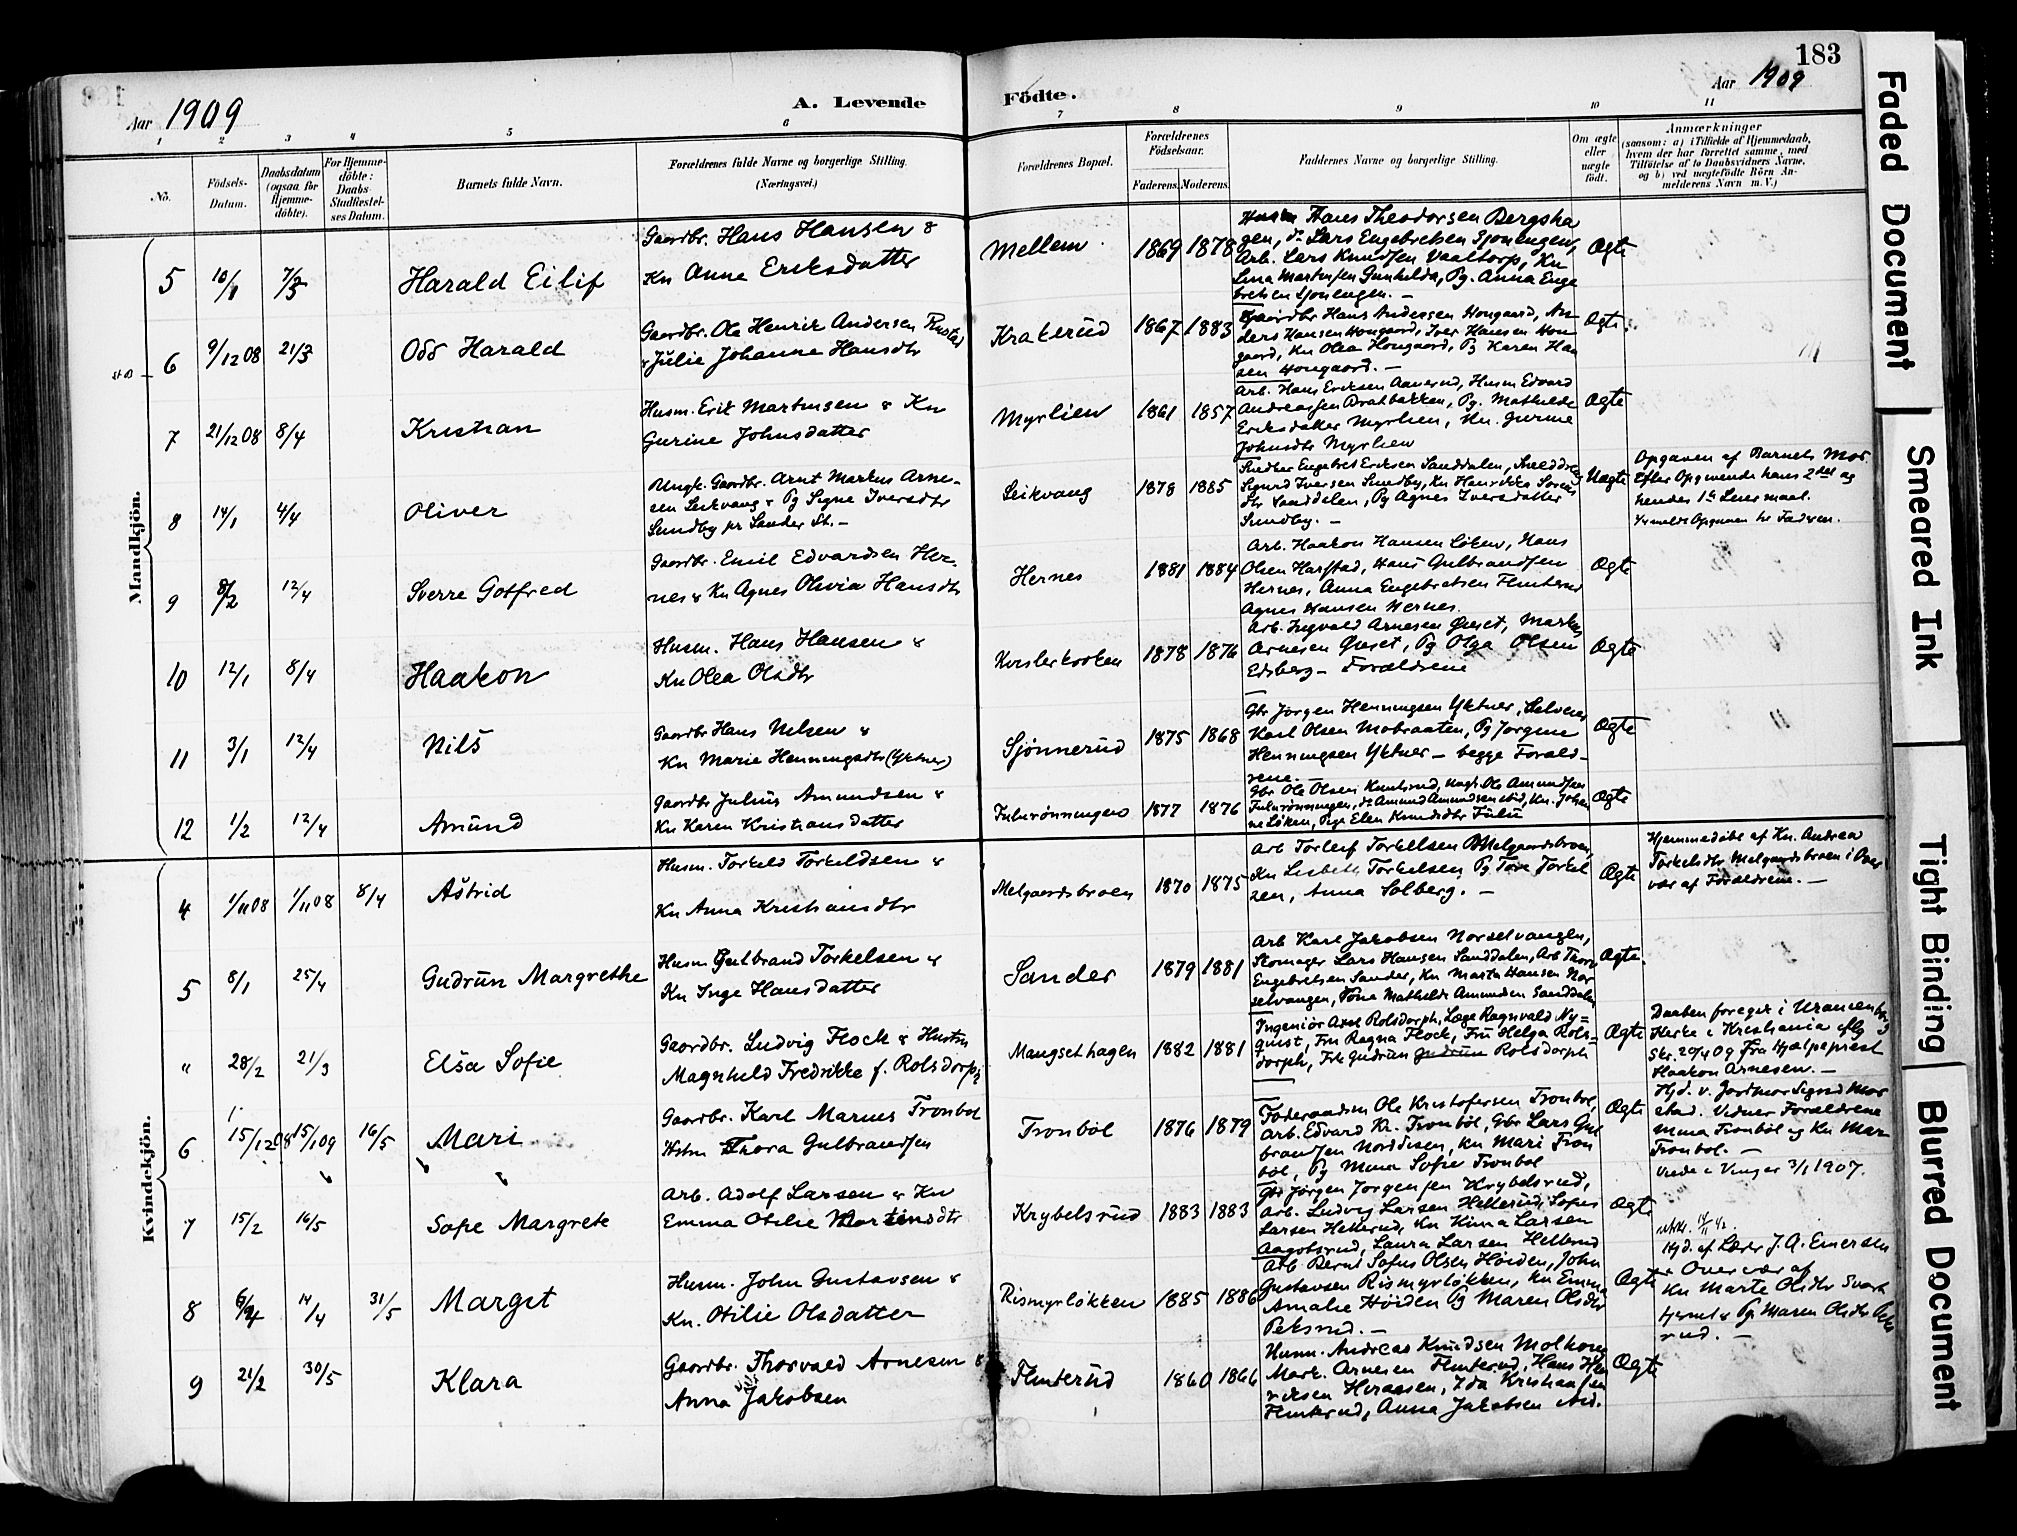 183
Aar 1909
A. Levende
Födte.
Aar 1909
1 2 3 4 5 6 7 8 9 10 11
No.
Födsels-
Datum.
Daabsdatum
(ogsaa for
Hjemme-
döbte).
For Hjemme-
döbte:
Daabs-
Stadfæstel-
ses Datum.
Barnets fulde Navn.
Forældrenes fulde Navne og borgerlige Stilling.
(Næringsvei.)
Forældrenes Bopæl.
Forældrenes
Födselsaar.
Faderens. Moderens.
Faddernes Navne og borgerlige Stilling.
Om ægte
eller
uægte
födt.
Anmærkninger
(saasom: a) i Tilfælde af Hjemmedaab,
hvem der har forrettet samme, med
Tilföielse af to Daabsvidners Navne,
og b) ved uægtefödte Börn An-
melderens Navn m. V.)
Mandkjön.
5 10/1 7/3 Harald Eilif
Gaardbr. Hans Hansen &
Kn Anne Eriksdatter
Mellem 1869 1878
Hans Theodorsen Bergsha
gen, do Lars Engebretsen Sjonengen,
Arb. Lars Knudsen Vaaltorp, Kn
Lina Martinsen Gunhilda, Pg. Anna Enge
bretsen Sjonengen. —
Ægte
6 9/12 08 21/3 Odd Harald
Gaardbr. Ole Henrik Andersen
& Julie Johanne Hansdtr
Krakerud 1867 1883
Gaardbr Hans Andersen Hougaard, An-
ders Hansen Hougaard, Iver Hansen Hou
gaard, Kn Olea Hougaard, Pg Karen Han
sen Hougaard. —
Ægte
7 21/12 08 8/4 Kristian
Husm. Erik Martinsen & Kn
Gurine Johnsdatter
Myrlien 1861 1857
Arb. Hans Eriksen Aanerud, Husm Edvard
Andreassen Bratbakken, Pg. Mathilde
Eriksdatter Myrlien, Kn. Gurine
Johnsdtr Myrlien
Ægte
8 14/1 4/4 Oliver
Ungk. Gaardbr. Arnt Markus Arne-
sen Leikvang & Pg Signe Iversdtr
Sundby pr Sander St. —
Leikvang 1878 1885
Engebret Eriksen Sanddalen,
Sigurd Iversen Sundby, Kn Henrikke
dtr Sanddalen, Pg Agnes Iversdatter
Sundby. —
Uægte
Opgaven af Barnets Mor.
Efter Opgivende hans 2det og
hendes 1ste Leiermaal.
Opgaven
9 8/2 12/4 Sverre Gotfred
Gaardbr. Emil Edvardsen Her-
nes & Kn Agnes Olivia Hansdtr
Hernes 1881 1884
Arb. Haakon Hansen Löken, Hans
Olsen Harstad, Hans Gulbrandsen
Hernes, Anna Engebretsen Flinterud
Agnes Hansen Hernes.
Ægte
10 12/1 8/4 Haakon
Husm. Hans Hansen &
Kn Olea Olsdtr
1878 1876
Arb. Ingvald Arnesen Öuset, Markus
Arnesen Öuset, Pg Olga Olsen
Edsberg — Forældrene
Ægte
11 3/1 12/4 Nils
Gaardbr Hans Nilsen &
Kn Marie Henningsdtr (Yktner)
Sjönnerud 1875 1868
Gbr Jörgen Henningsen Yktner, Selveier
Karl Olsen Mobraaten, Pg Jorgine
Henningsen Yktner — begge Foræld-
rene. —
Ægte
12 1/2 12/4 Amund
Gaardbr Julius Amundsen &
Kn Karen Kristiansdatter
Fulurönningen 1877 1876
Gbr Ole Olsen Knutsrud, Ungk. Ole Amundsen
Fulurönningen, do Amund Amundsen ibid, Kn. Johan
ne Löken, Pige Elen Knudsdtr Fulu
Ægte
Kvindekjön.
4 1/11 08 1/11 08 8/4 Astrid
Husm. Torkild Torkildsen &
Kn Anna Kristiansdtr
Melgaardsbroen 1870 1875
Arb Torleif Torkelsen Melgaardsbroen,
Kn Lisbeth Torkelsen Pg Tore Torkel
sen, Anna Solberg. —
Ægte
Hjemmedöbt af Kn. Andrea
Torkelsdtr Melgaardsbroen i Over
vær af Forældrene. —
5 8/1 25/4 Gudrun Margrethe
Husm Gulbrand Torkelsen &
Kn Inge Hansdatter
Sander 1879 1881
Arb Karl Jakobsen Norselvangen,
Skomager Lars Hansen Sanddalen, Arb Thorv
Engebretsen Sander, Kn Marta Hansen Nor
selvangen, Mathilde Amundsen Sanddalen
Ægte.
" 28/2 21/3 Elsa Sofie
Gaardbr. Ludvig Flock & Hustru
Magnhild Fredrikke f. Rolsdorph
Maugsethagen 1882 1881
Ingeniör Axel Rolsdorph, Læge Ragnvald Ny=
quist, Fru Ragna Flock, Fru Helga Rols-
dorph, Frk Gudrun Rolsdorph
Ægte
Daaben foreget i Uranienborg
Kirke i Kristiania iflg
Skr. 20/4 09 fra Hjælpeprest
Haakon Arnesen. —
6 15/12 08 15/1 09 16/5 Mari
Gaardbr. Karl Marius Tronböl
Hstru Thora Gulbrandsen
Tronböl 1876 1879
Föderaadsm Ole Kristofersen Tronböl,
Arb. Edvard Kr. Tronböl, Gbr Lars Gul
brandsen Norddisen, Kn Mari Tron
böl, Pg Mina Sofie Tronböl
Ægte
Hjd. v. Jordmor Signe Mor
stad. Vidner Forældrene
Mina Tronböl og Kn Mari
Tronböl. —
Viede i Vinger 3/1 1907.
7 15/2 16/5 Sofie Margrete
Arb. Adolf Larsen & Kn
Emma Otilie Martinsdtr
Krybelsrud 1883 1883
Gbr Jörgen Jorgensen Krybelsrud,
Arb. Ludvig Larsen Hellerud, Sofus
Larsen Hellerud, Kn Kima Larsen
Aagotsrud, Laura Larsen Hellerud
Ægte
8 6/4 14/4 31/5 Margit
Husm. John Gustavsen &
Kn. Otilie Olsdatter
Rismyrlökken 1885 1886
Arb. Bernt Sofus Olsen Höiden, John
Gustavsen Rismyrlökken, Kn Emma
Amalie Höiden Pg Maren Olsdtr
Peksrud. —
Ægte
Hjd. af Lærer J. A. Emersen
i Overvær af
Kn Marte Olsdtr Svart
& Pg. Maren Olsdtr Peks
rud. —
9 21/2 30/5 Klara
Gaardbr. Thorvald Arnesen &
Anna Jakobsen
Flinterud 1860 1866
Husm. Andreas Knudsen Molkom
Mark. Arnesen Flinterud, Hans Hen
riksen Horaasen, Ida Kristiansen
Flinterud, Anna Jakobsen ibid.
Ægte
Faded Document
Smeared Ink
Tight Binding
Blurred Document